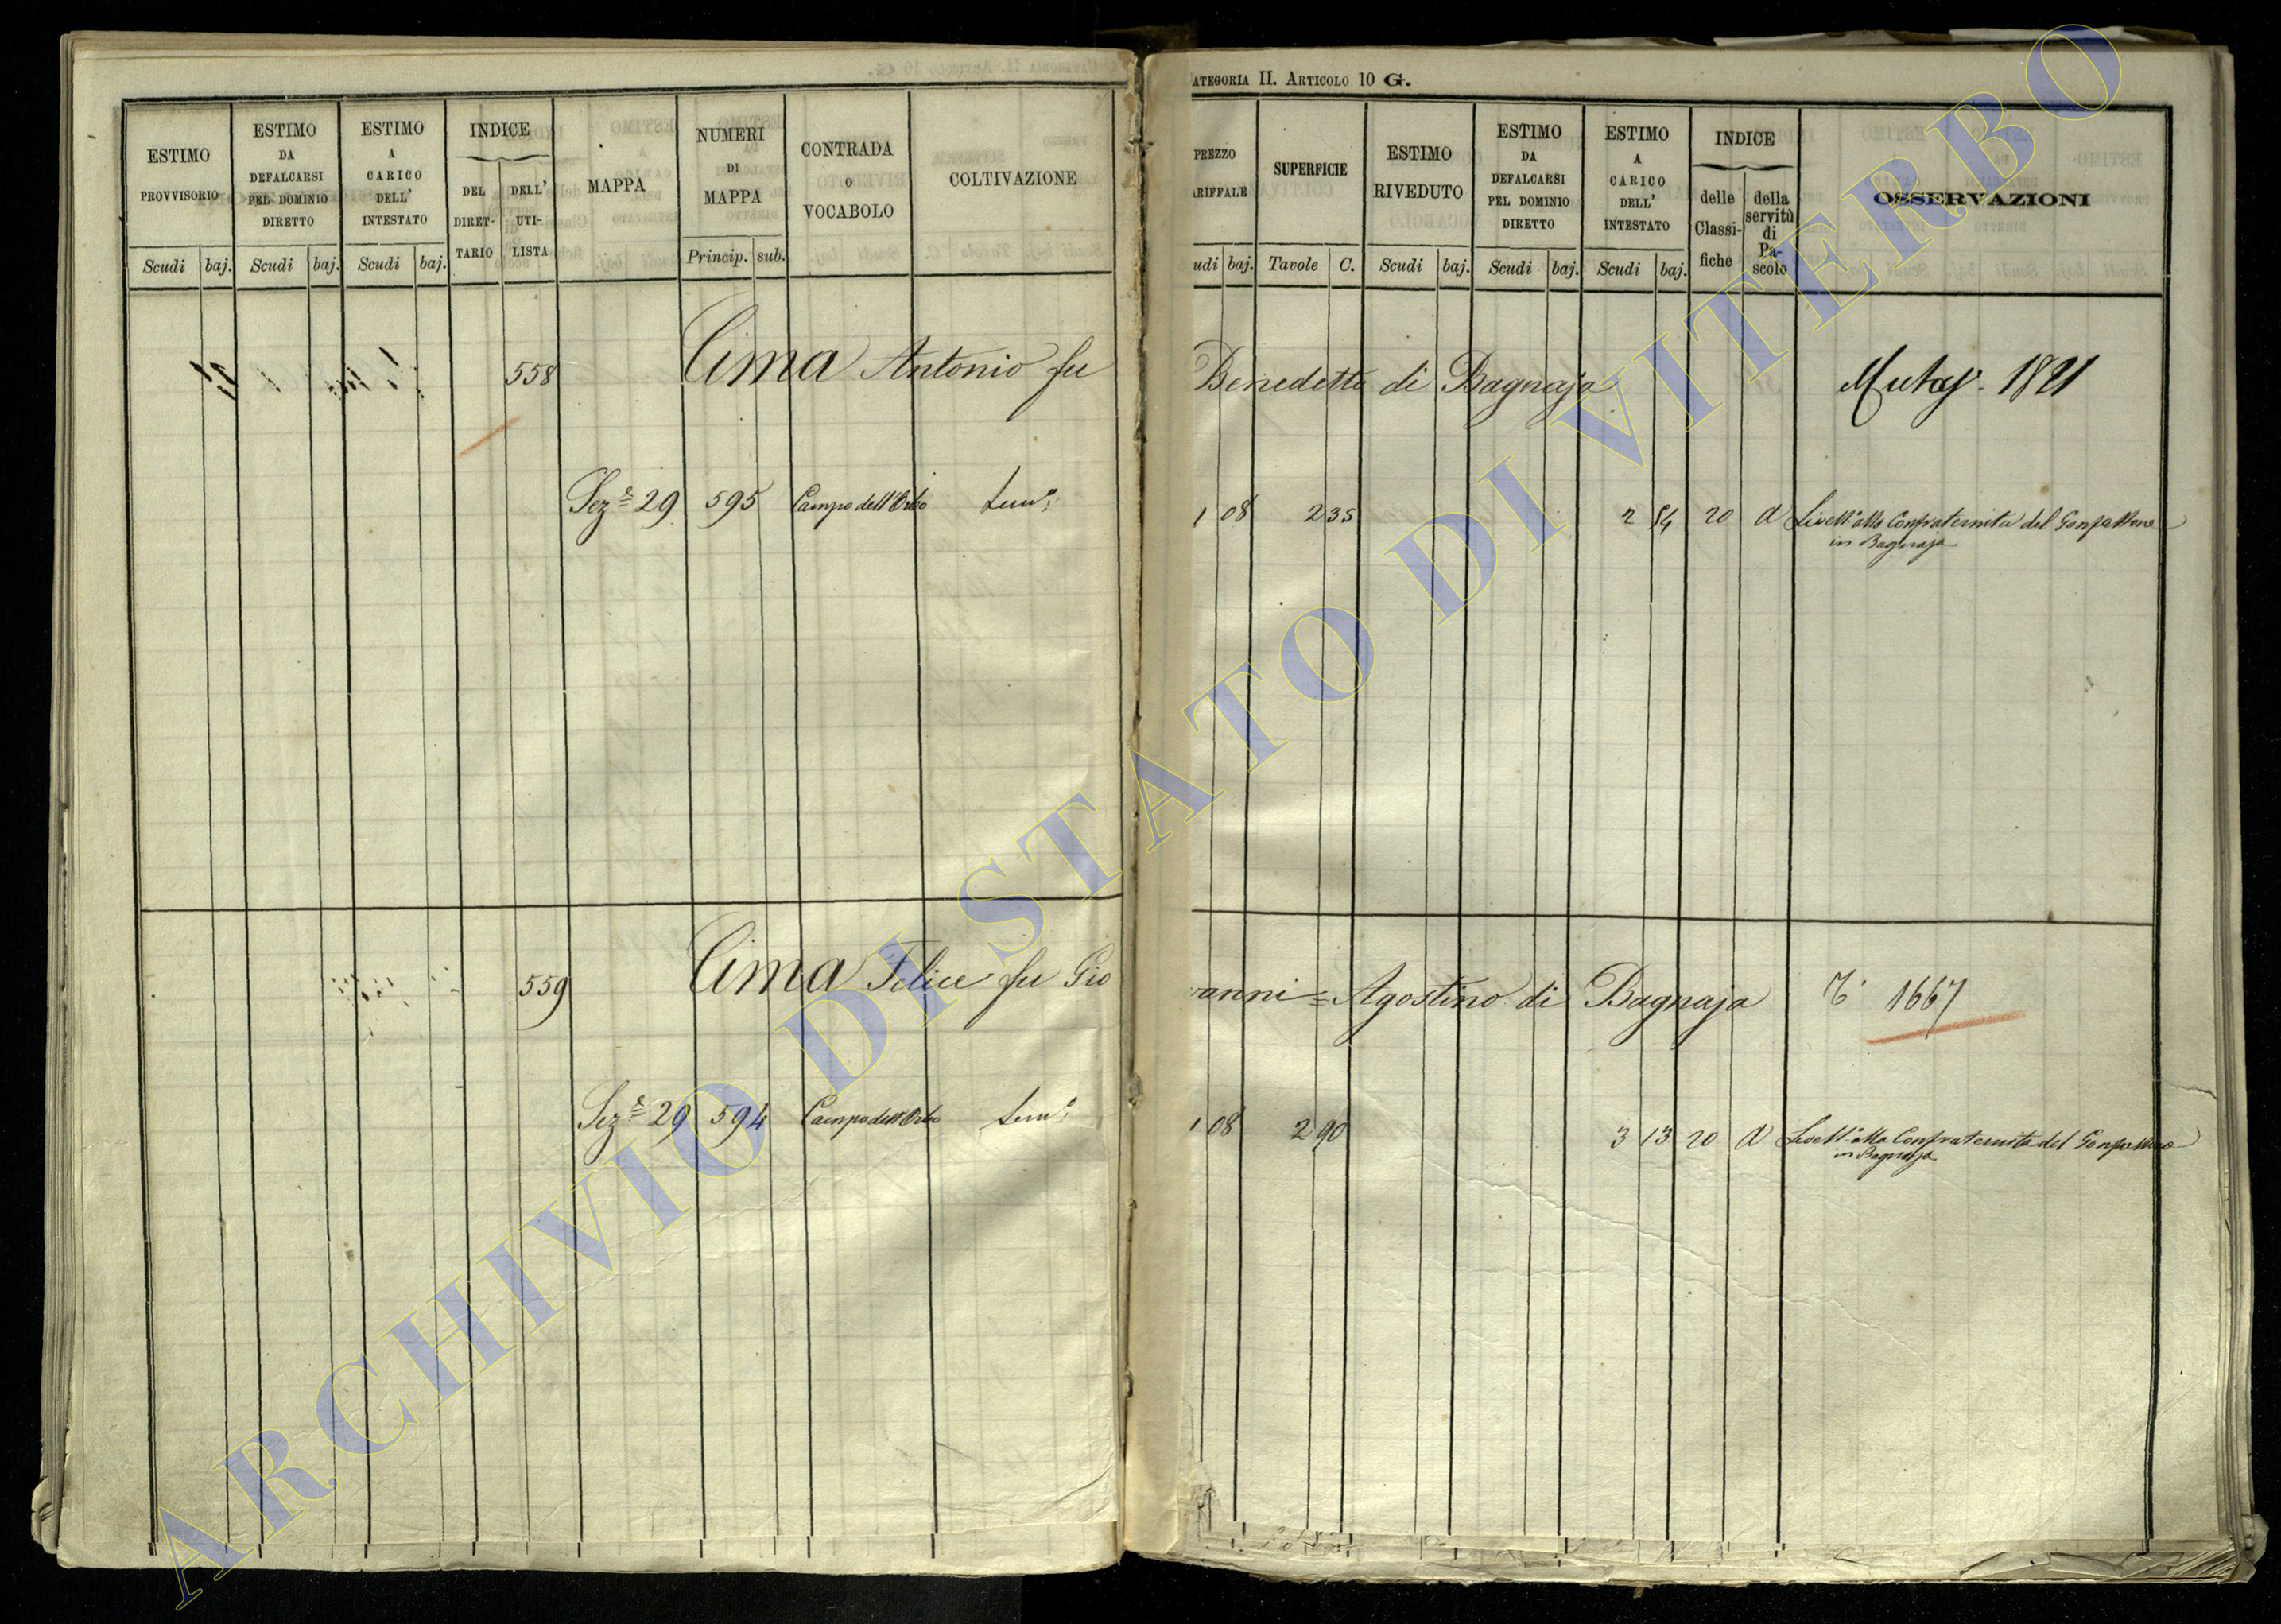 ATEGORIA II. ARTICOLO 10 G.
ESTIMO PROVVISORIO
Scudi baj.
ESTIMO DA DEFALCARSI PEL DOMINIO DIRETTO
Scudi baj.
ESTIMO A CARICO DELL' INTESTATO
Scudi baj.
INDICE
DEL DIRET-TARIO
DELL' UTI-LISTA
MAPPA
NUMERI DI MAPPA
Princip. sub.
CONTRADA O VOCABOLO
COLTIVAZIONE
PREZZO
ARIFFALE
udi baj.
SUPERFICIE
Tavole C.
ESTIMO RIVEDUTO
Scudi baj.
ESTIMO DA DEFALCARSI PEL DOMINIO DIRETTO
Scudi baj.
ESTIMO A CARICO DELL' INTESTATO
Scudi baj.
INDICE
delle Classi-fiche
della servitù di Pa-scolo
OSSERVAZIONI
558 Cima Antonio fu Benedetto di Bagnaja
Sez.e 29 595 Campo dell'Orto 1 08 2 35 2 54 20 a Livell.o alla Confraternita del Gonfalone
in Bagnaja
559 Cima Felice fu Gio vanni = Agostino di Bagnaja 1667
Sez.e 29 594 Campo dell'Orto 1 08 2 90 3 13 20 a Livell.o alla Confraternita del Gonfalone
in Bagnaja
ARCHIVIO DI STATO DI VITERBO